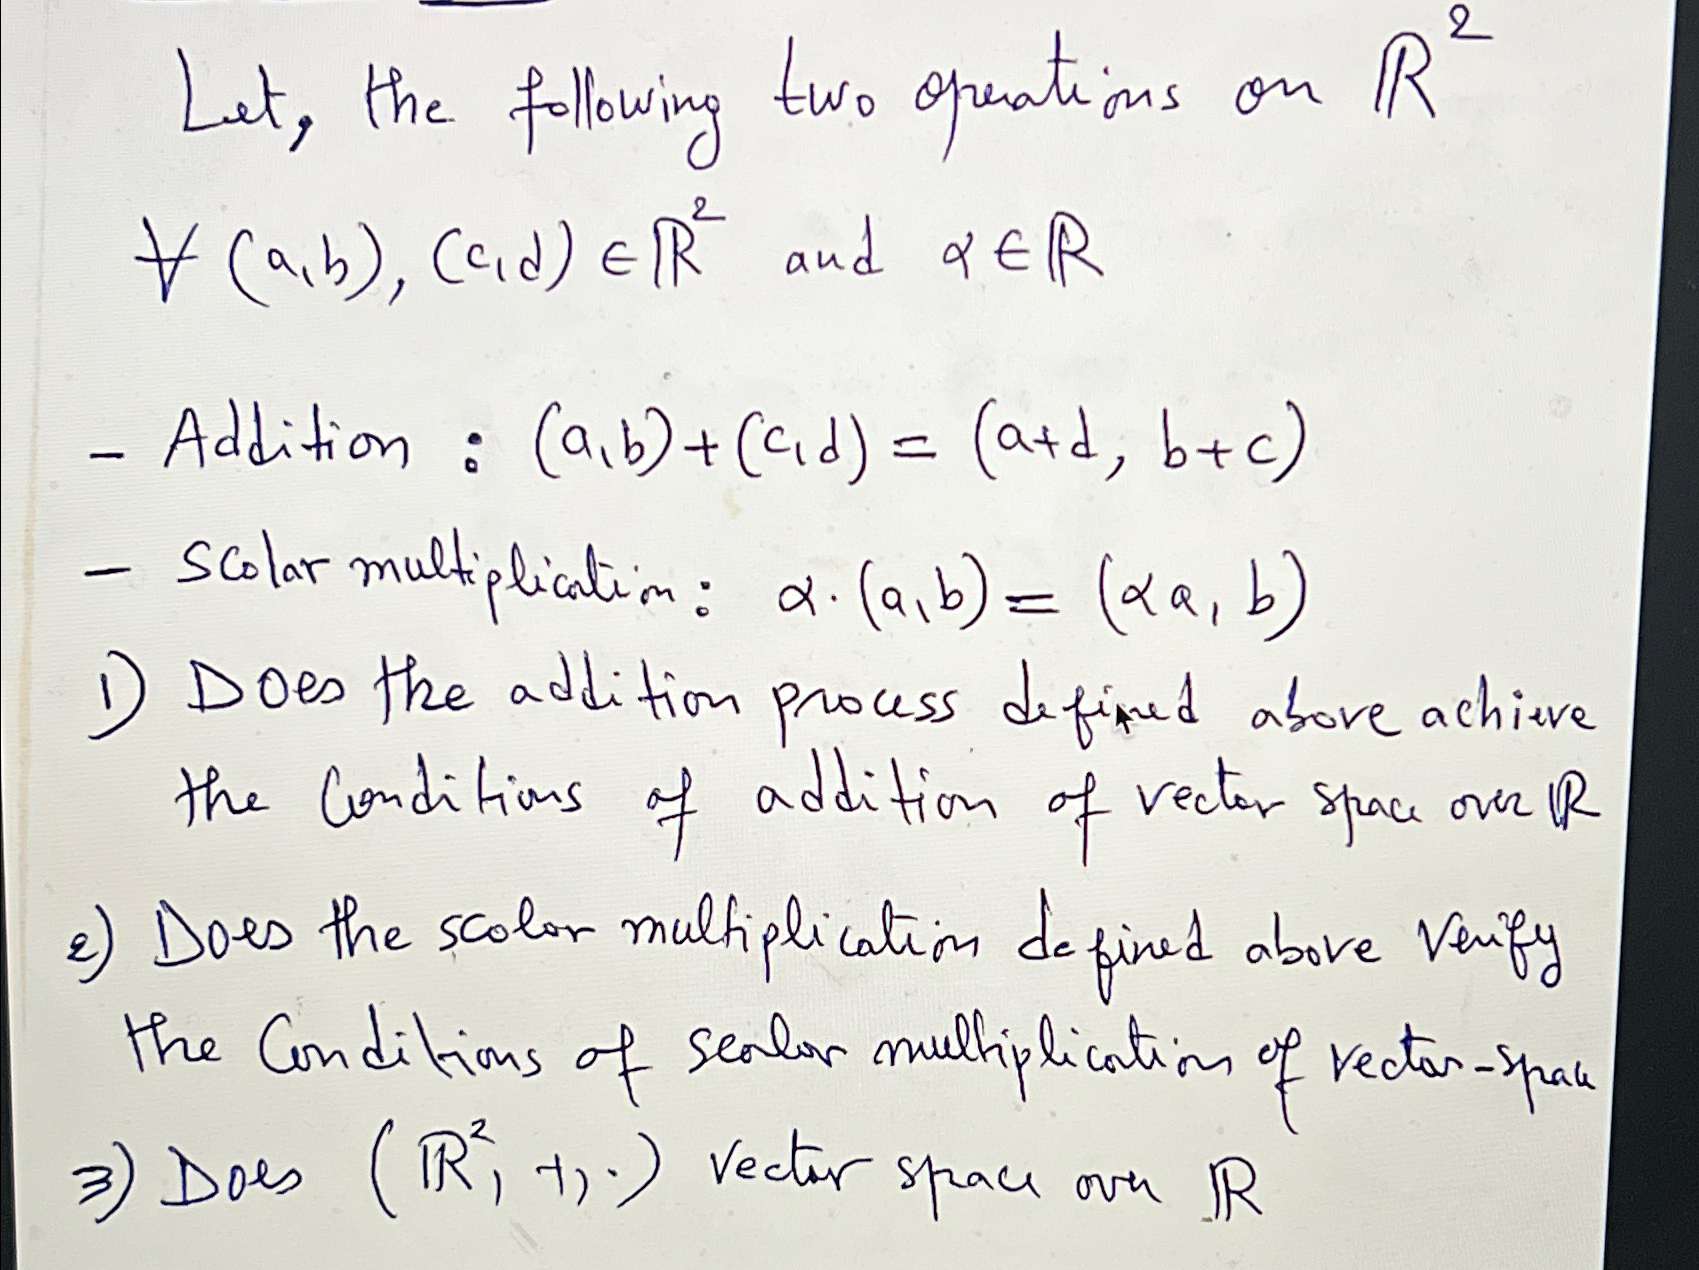 Let, the following two operations on ℝ²
∀ (a,b), (c,d) ∈ ℝ² and α ∈ ℝ
- Addition : (a,b)+(c,d) = (a+d, b+c)
- Scolar multiplication : α.(a,b) = (αa, b)
1) Does the addition process defined above achieve
the Conditions of addition of vector space over ℝ
2) Does the scolar multiplication defined above verify
the Conditions of scalar multiplication of vector-space
3) Does (ℝ², +, .) vector space over ℝ